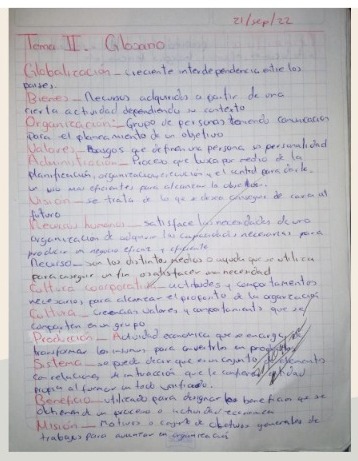 21/sep/22
Tema II. Glosario
Globalización_ creciente interdependencia entre los
países.
Bienes_ Recursos adquiridos a partir de una
cierta actividad dependiendo su contexto
Organización: Grupo de personas teniendo comunicación
para el planeamiento de un objetivo
Valores_ Rasgos que definen una persona su personalidad
Administración_ Proceso que busca por medio de la
planificación, organización, ejecución y el control para darle
un uso más eficientes para alcanzar los objetivos.
Visión_ se trata de lo que se desea conseguir de cara al
futuro
Recursos humanos_ satisface las necesidades de una
organización de adquirir las capacidades necesarias para
producir un negocio eficaz y eficiente
Recurso_ son los distintos medios o ayuda que se utiliza
para conseguir un fin o satisfacer una necesidad
Cultura coorporativa_ actitudes y comportamientos
necesarios para alcanzar el proposito de la organización
Cultura_ creencias valores y comportamientos que se
comparten en un grupo
Producción_ Actividad economica que se encarga
transformar los insumos para convertirlos en productos
Sistema_ se puede decir que es un conjunto de elementos
con relaciones de interacción que le confieren entidad
propia al formar un todo unificado.
Beneficio_ utilizado para designar los beneficios que se
obtienen de un proceso o actividad economica
Misión_ Motivos o conjunto de objetivos generales de
trabajos para avanzar en organización